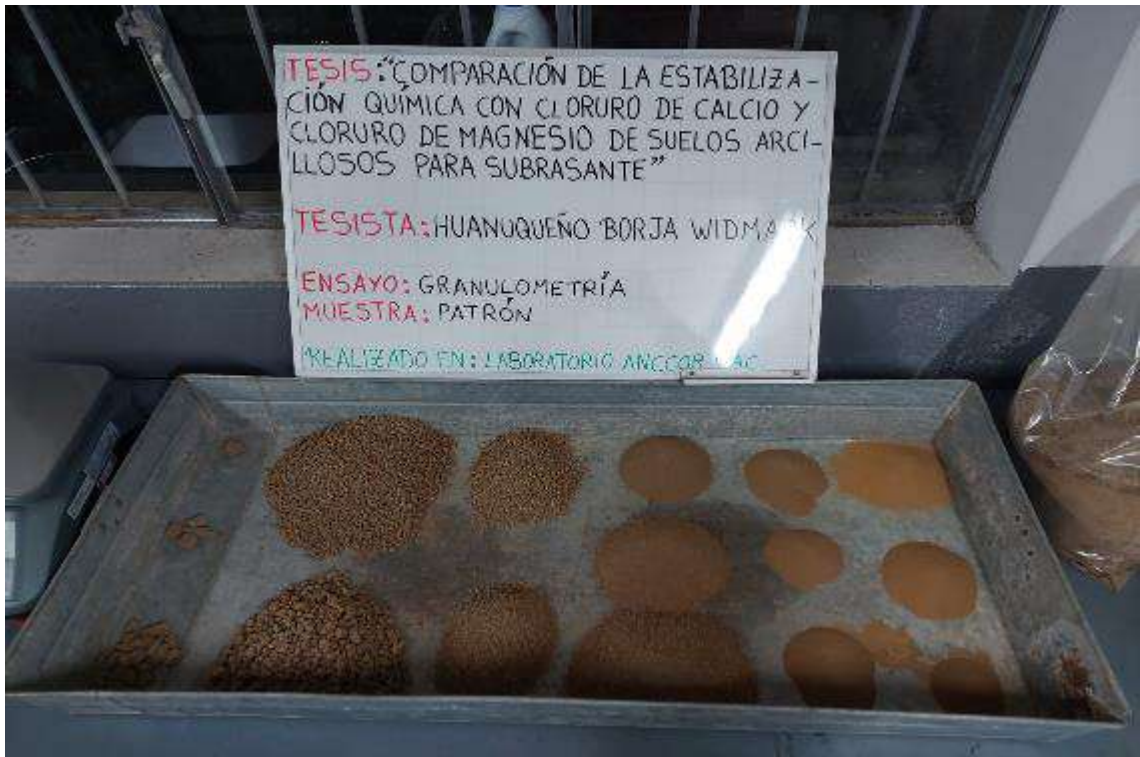 TESIS: "COMPARACIÓN DE LA ESTABILIZA-
CIÓN QUÍMICA CON CLORURO DE CALCIO Y
CLORURO DE MAGNESIO DE SUELOS ARCI-
LLOSOS PARA SUBRASANTE"
TESISTA: HUANUQUEÑO BORJA WIDMARK
ENSAYO: GRANULOMETRÍA
MUESTRA: PATRÓN
REALIZADO EN: LABORATORIO ANCCOR